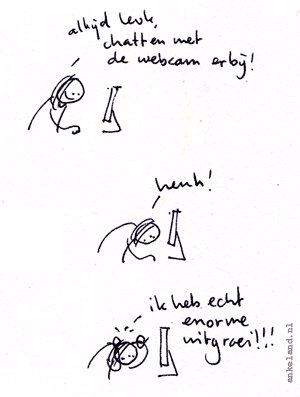 altijd leuk,
chatten met
de webcam erbij!
heuh!
ik heb echt
enorme
uitgroei!!!
ankeland.nl